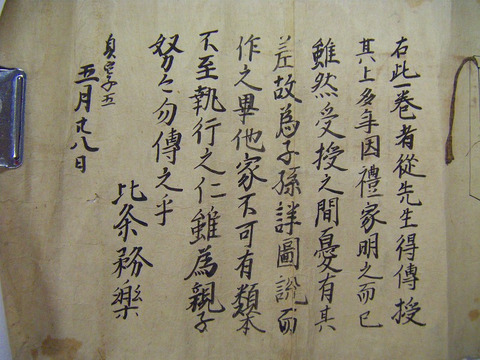 右此一巻者従先生得傳授
其上多年因禮家明之而已
雖然受授之間憂有其
差故為子孫詳圖説而
作之畢他家不可有類本
不至執行之仁雖為親子
努々勿傳之乎
貞享五
五月廿八日
比条務樂